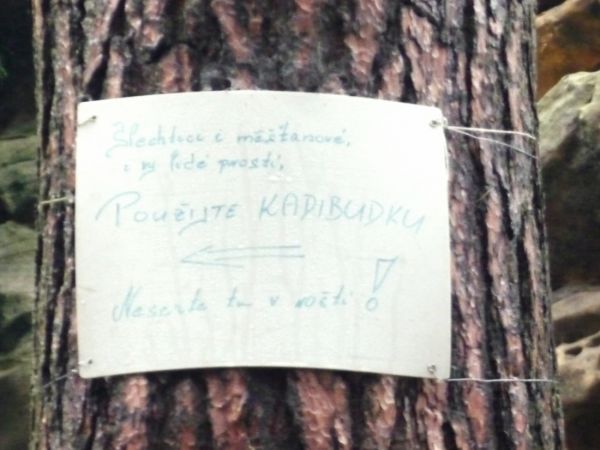 Šlechtici i měšťanové,
i vy lidé prostí,
POUŽIJTE KADIBUDKU
Neserte tu v roští!